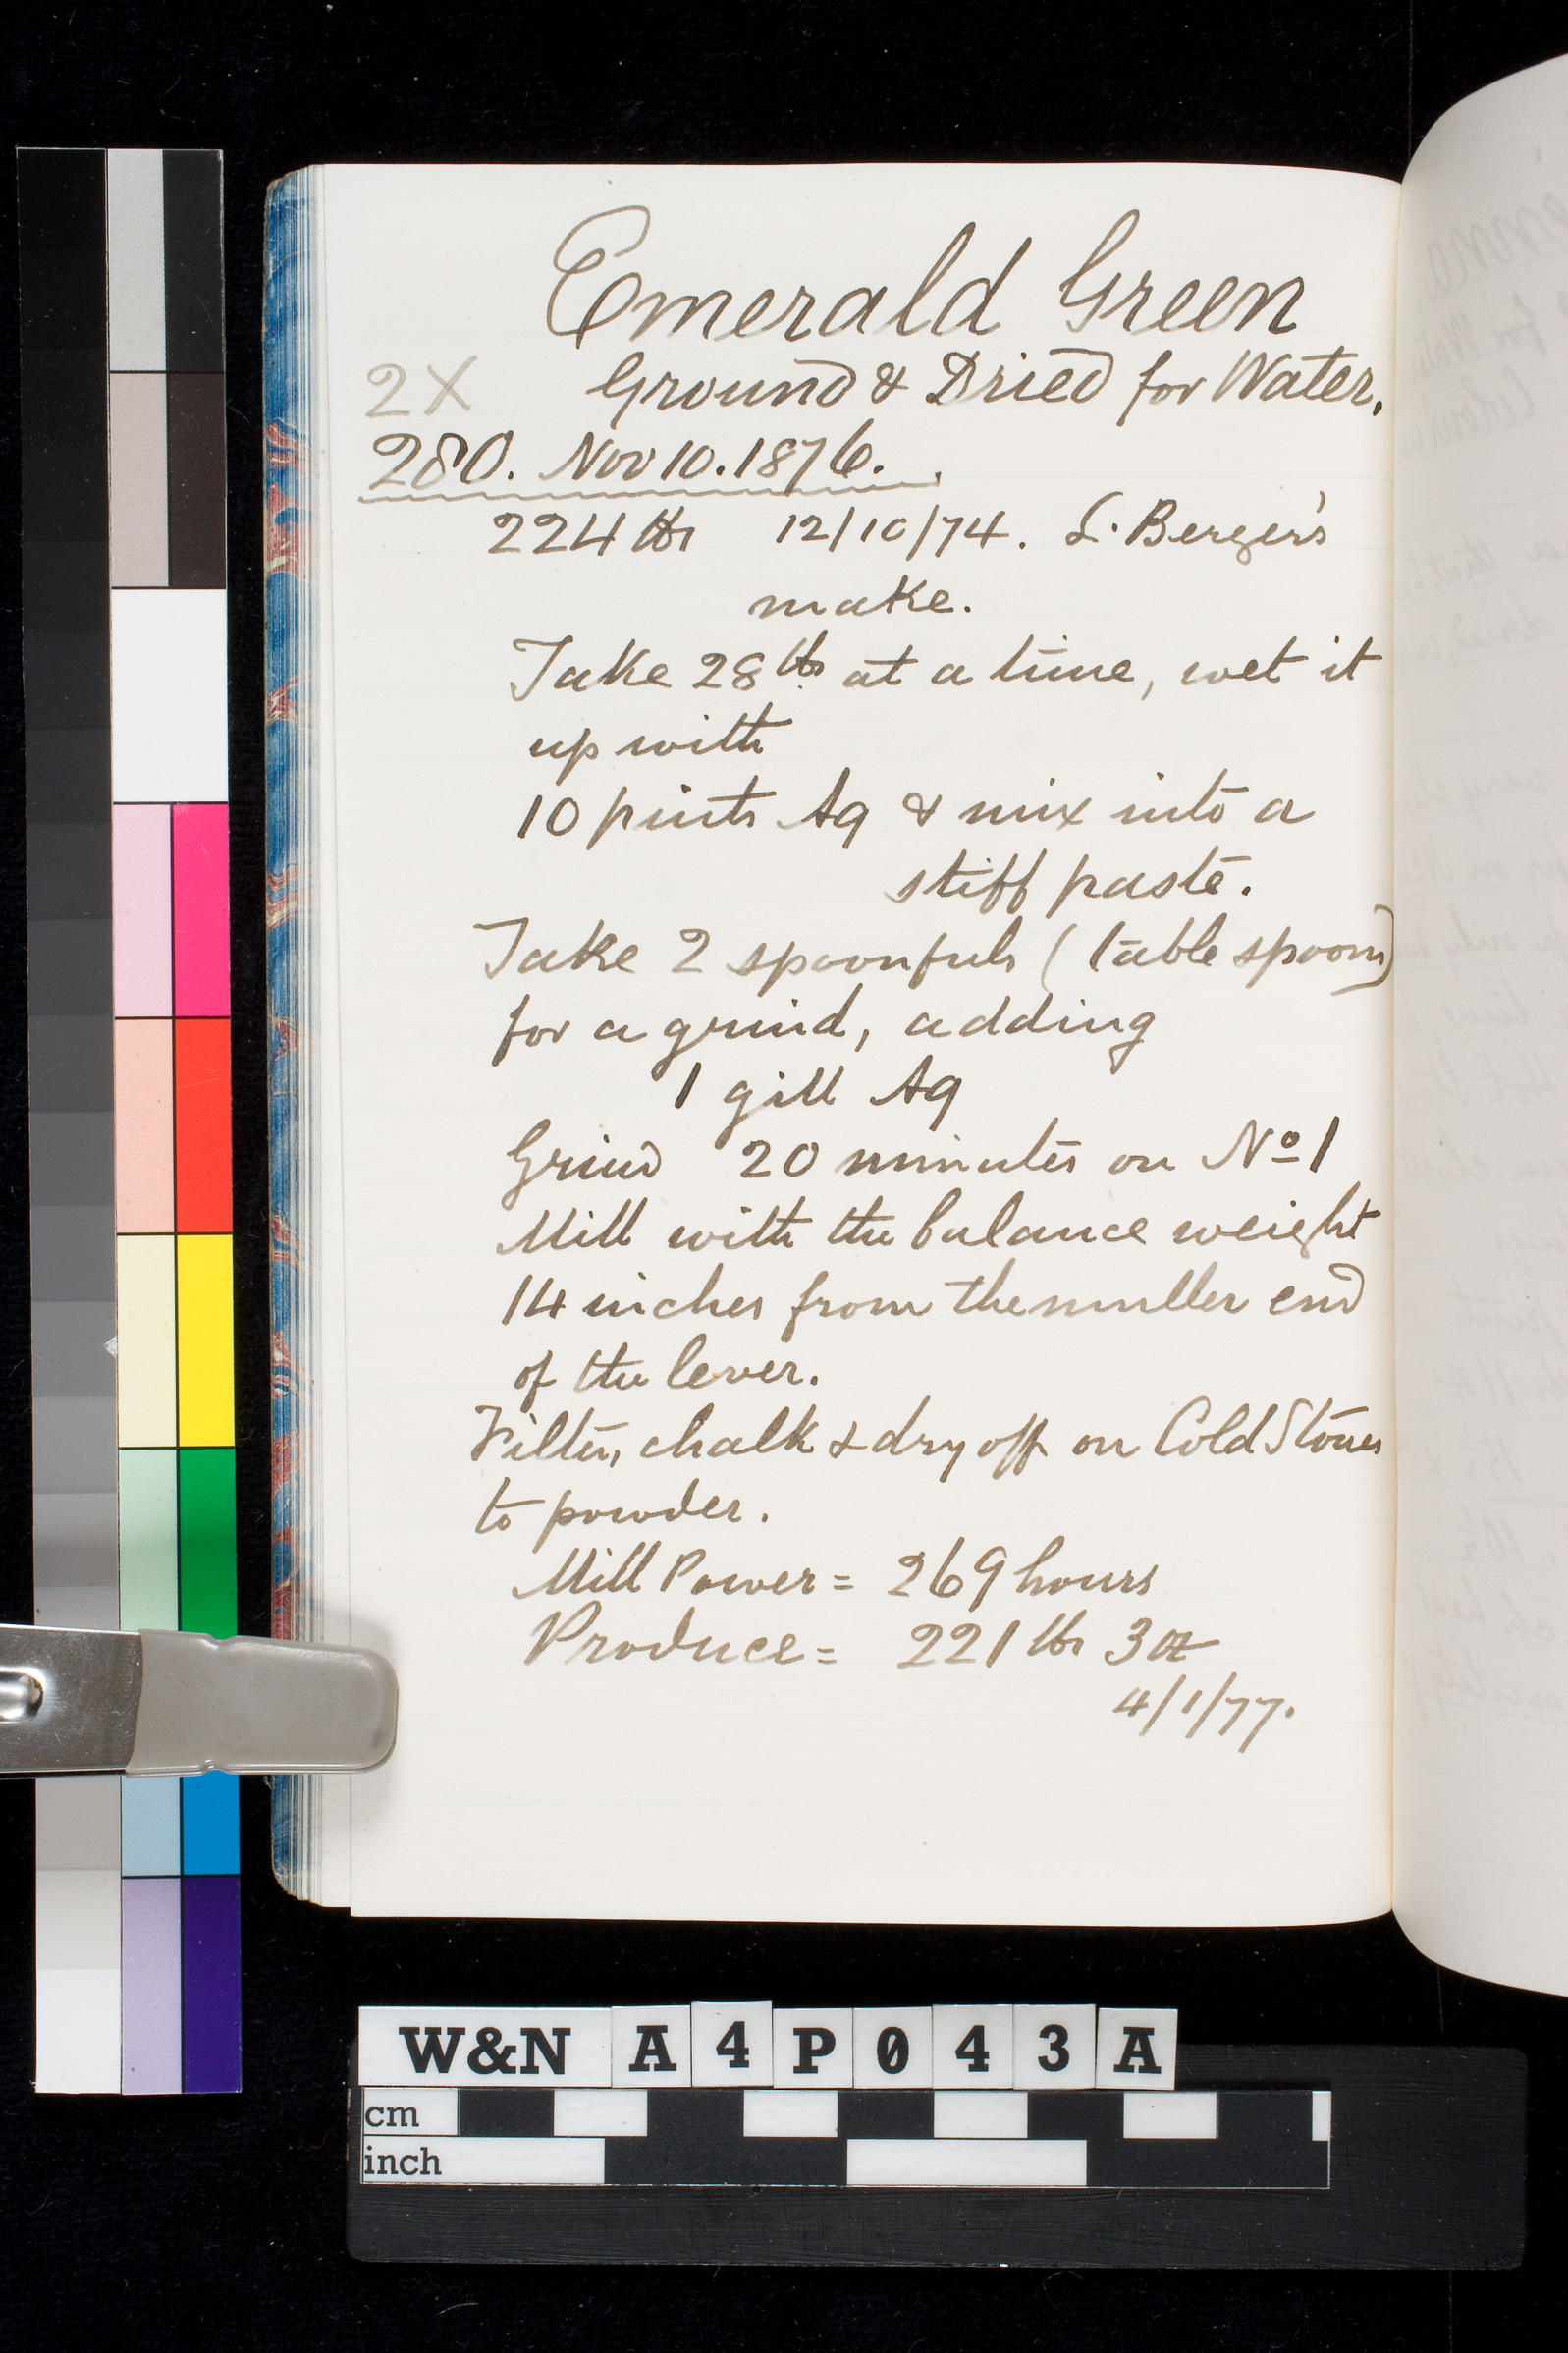 Emerald Green
2X Ground & Dried for Water.
280. Nov 10. 1876.
224 lbs 12/10/74. L. Berger's
make.
Take 28 lbs at a time, wet it
up with
10 pints Aq & mix into a
stiff paste.
Take 2 spoonfuls (table spoon)
for a grind, adding
1 gill Aq
Grind 20 minutes on No 1
Mill with the balance weight
14 inches from the muller end
of the lever.
Filter, chalk & dry off on Cold Stones
to powder.
Mill Power = 269 hours
Produce = 221 lbs 3 oz
4/1/77.
W&N A4P043A
cm
inch